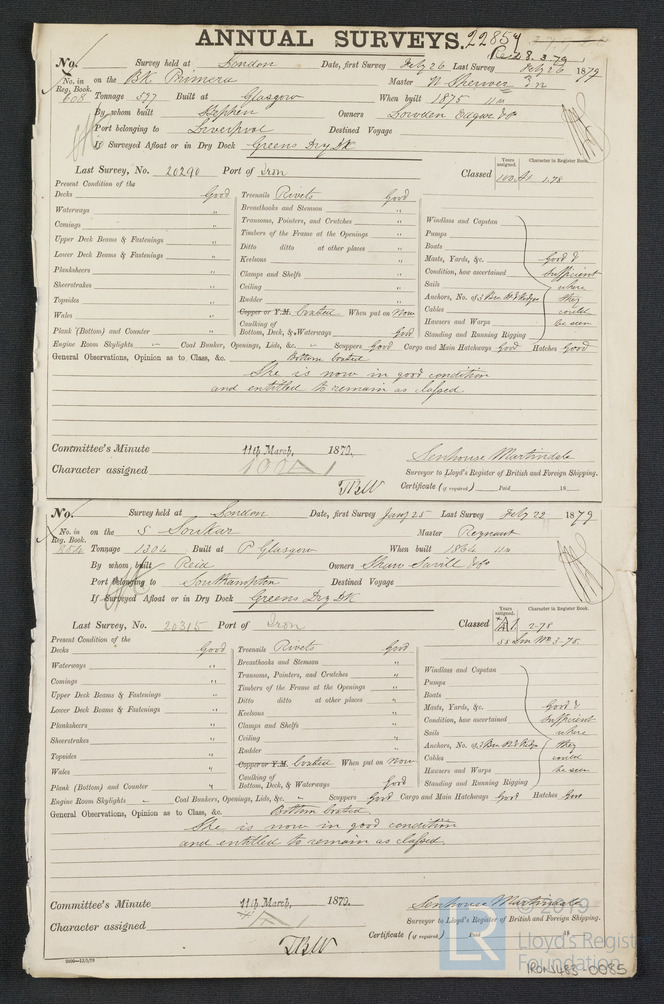 ANNUAL SURVEYS. 22854
Rec 28.3.79
No. Survey held at London Date, first Survey Feby 26 Last Survey Feby 26 1879
No. in Reg. Book. on the Bk Primera Master
608 Tonnage 597 Built at Glasgow When built 1875 11m
By whom built Stephen Owners Lowden Edgar & Co
Port belonging to Liverpool Destined Voyage
If Surveyed Afloat or in Dry Dock Greens Dry Dk
Last Survey, No. 20290 Port of Iron Classed
Years assigned. Character in Register Book.
100A1 1.78
Present Condition of the
Decks Good
Waterways "
Comings "
Upper Deck Beams & Fastenings "
Lower Deck Beams & Fastenings "
Planksheers "
Sheerstrakes "
Topsides "
Wales "
Plank (Bottom) and Counter "
Treenails Rivets Good
Breasthooks and Stemson "
Transoms, Pointers, and Crutches "
Timbers of the Frame at the Openings "
Ditto ditto at other places "
Keelsons "
Clamps and Shelfs "
Ceiling "
Rudder "
Copper or Y.M. Coated When put on Now
Caulking of Bottom, Deck, & Waterways Good
Windlass and Capstan
Pumps
Boats
Masts, Yards, &c.
Condition, how ascertained
Sails
Anchors, No. of 3 Bra St & Kedges
Cables
Hawsers and Warps
Standing and Running Rigging
Good &
Sufficient
where
they
could
be seen
Engine Room Skylights " Coal Bunker, Openings, Lids, &c. " Scuppers Good Cargo and Main Hatchways Good Hatches Good
General Observations, Opinion as to Class, &c. Bottom Coated
She is now in good condition
and entitled to remain as classed.
Committee's Minute 11th March, 1879.
Character assigned 100A1
Senhouse Martindale
Surveyor to Lloyd's Register of British and Foreign Shipping.
TBW
Certificate (if required) Paid 18
No. Survey held at London Date, first Survey Jany 25 Last Survey Feby 22 1879
No. in Reg. Book. on the S Soukar Master Reynaut
854 Tonnage 1304 Built at P Glasgow When built 1864 11m
By whom built Reid Owners Shaw Savill & Co
Port belonging to Southampton Destined Voyage
If Surveyed Afloat or in Dry Dock Greens Dry Dk
Last Survey, No. 20315 Port of Iron Classed
Years assigned. Character in Register Book.
A1 2-78
SS Lon No 3-78.
Present Condition of the
Decks Good
Waterways "
Comings "
Upper Deck Beams & Fastenings "
Lower Deck Beams & Fastenings "
Planksheers "
Sheerstrakes "
Topsides "
Wales "
Plank (Bottom) and Counter "
Treenails Rivets Good
Breasthooks and Stemson "
Transoms, Pointers, and Crutches "
Timbers of the Frame at the Openings "
Ditto ditto at other places "
Keelsons "
Clamps and Shelfs "
Ceiling "
Rudder "
Copper or Y.M. Coated When put on Now
Caulking of Bottom, Deck, & Waterways Good
Windlass and Capstan
Pumps
Boats
Masts, Yards, &c.
Condition, how ascertained
Sails
Anchors, No. of 3 Bra St & Kedges
Cables
Hawsers and Warps
Standing and Running Rigging
Good &
Sufficient
where
they
could
be seen
Engine Room Skylights " Coal Bunkers, Openings, Lids, &c. " Scuppers Good Cargo and Main Hatchways Good Hatches Good
General Observations, Opinion as to Class, &c. Bottom Coated
She is now in good condition
and entitled to remain as classed.
Committee's Minute 11th March, 1879.
Character assigned A1
Senhouse Martindale
Surveyor to Lloyd's Register of British and Foreign Shipping.
TBW
Certificate (if required) Paid 18
© 2019
LR Lloyd's Register Foundation
IRON 483-0085